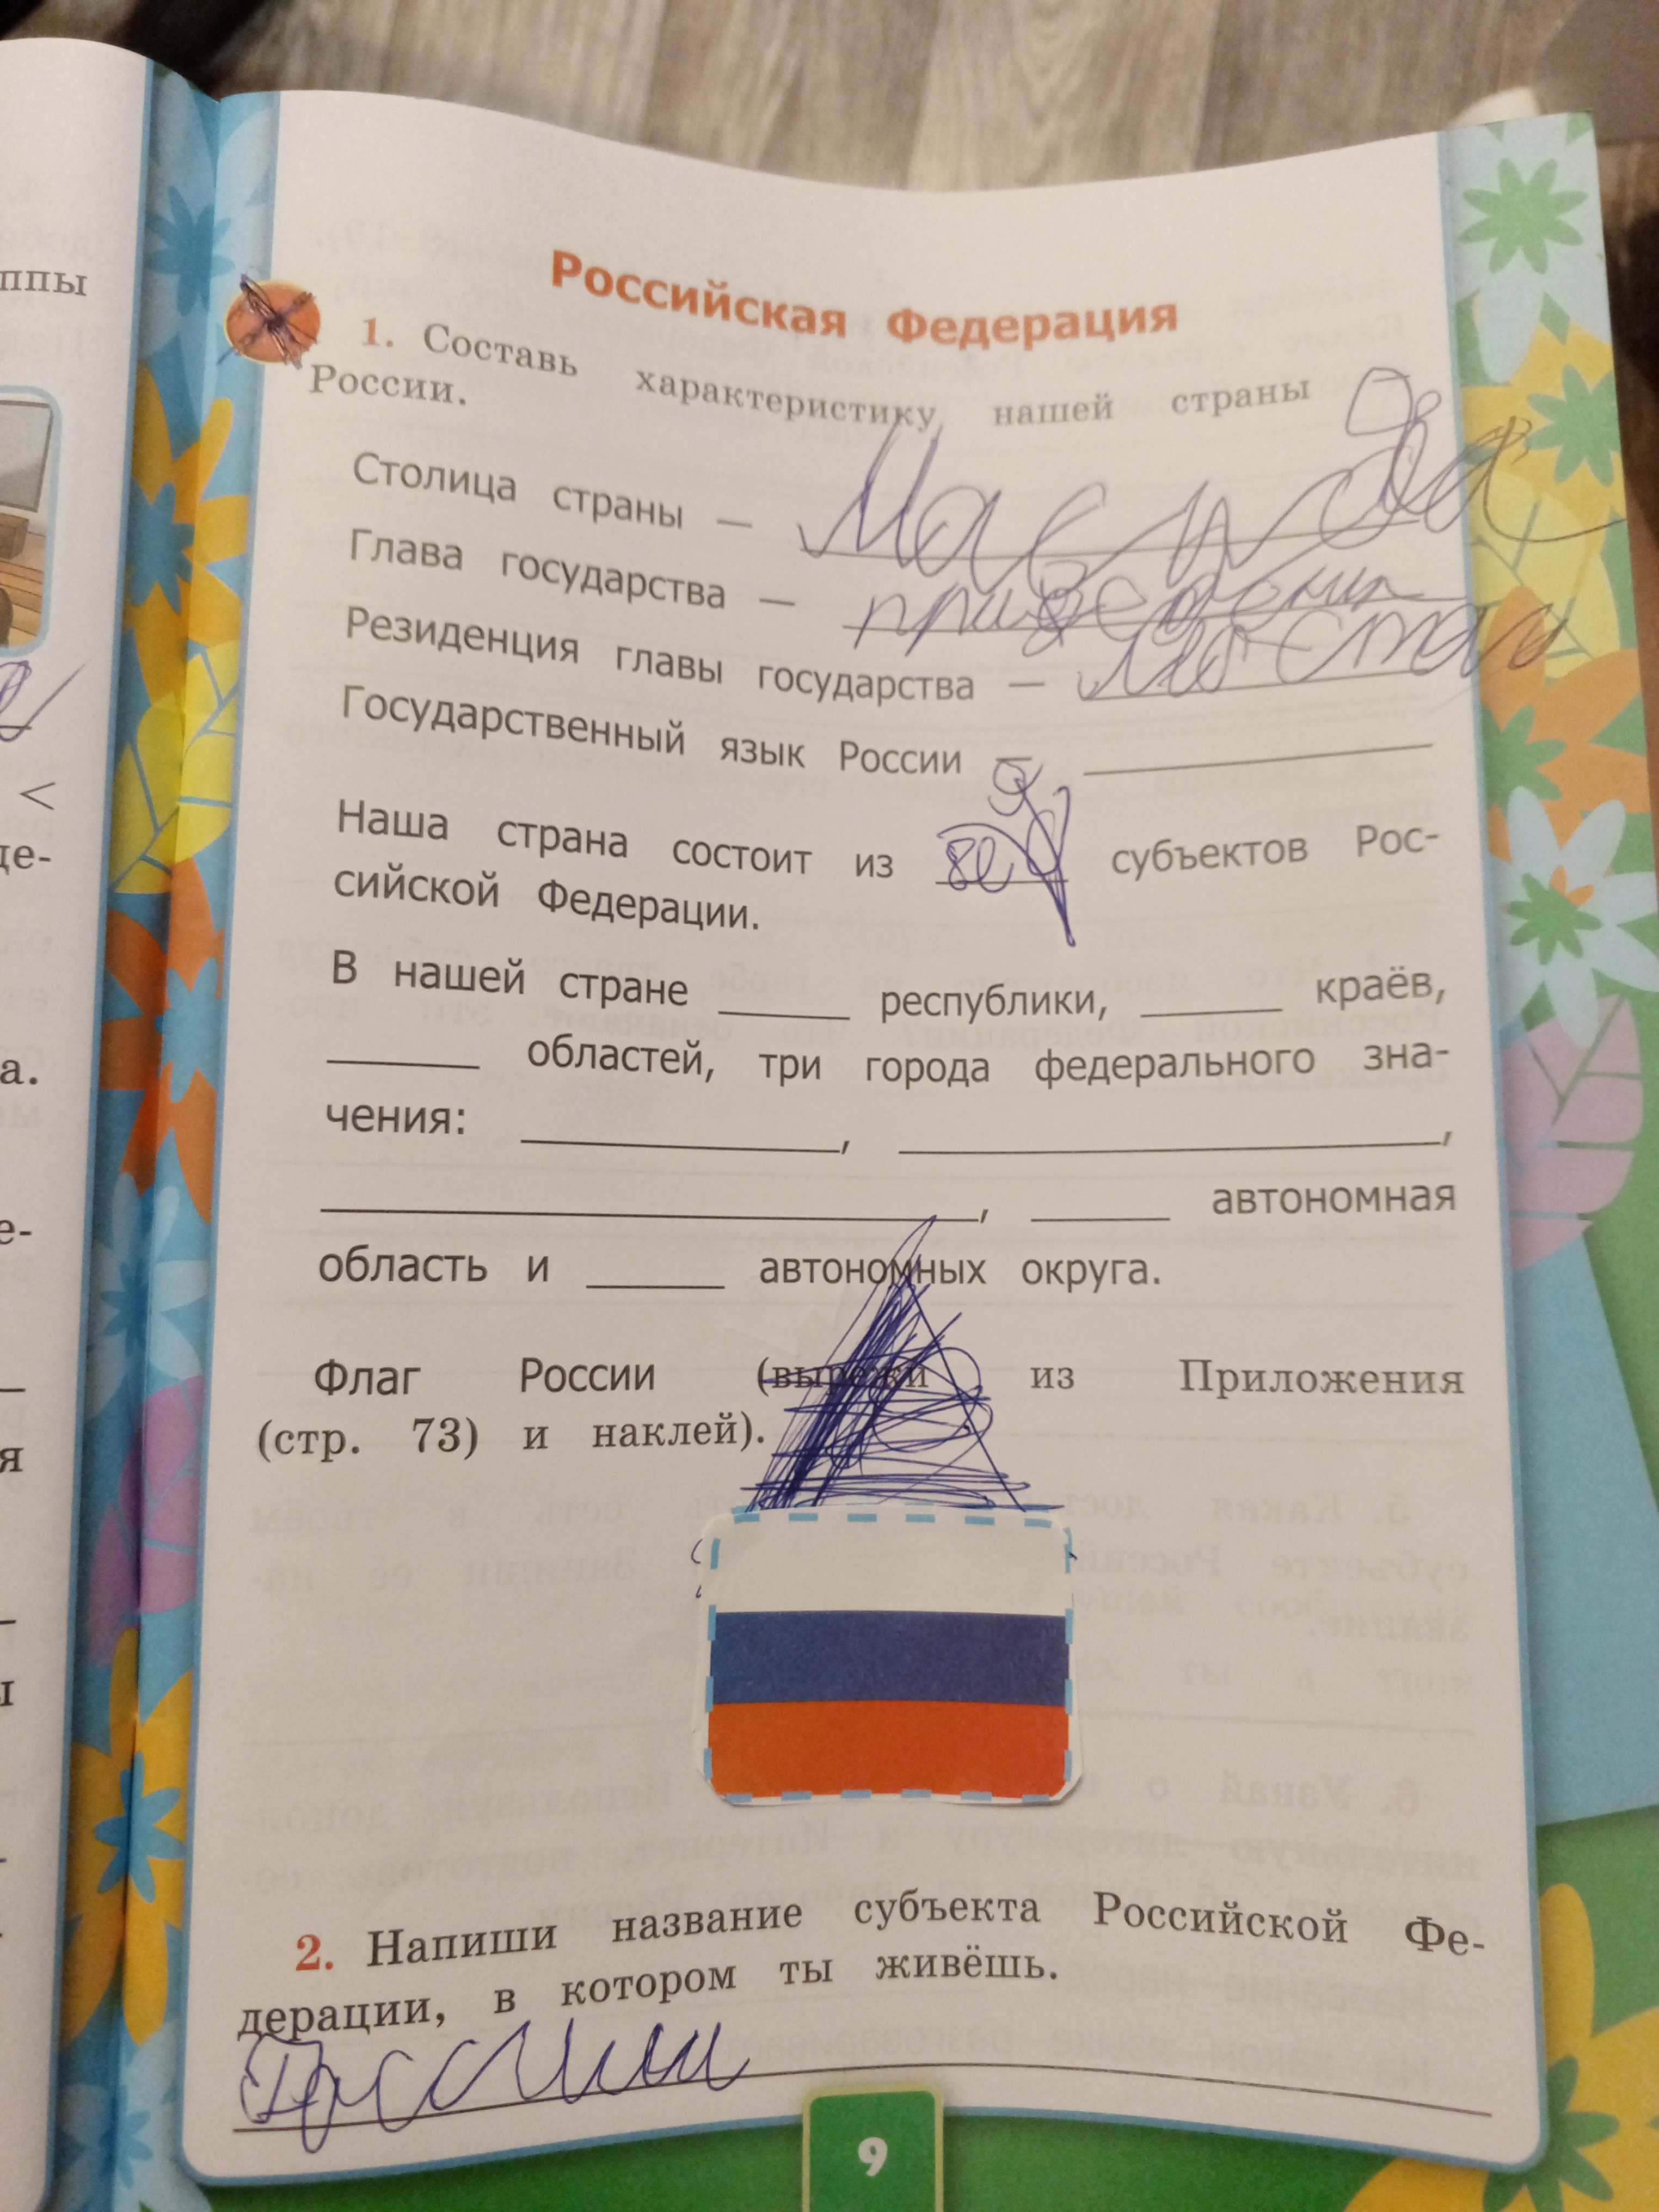 ппы
Российская Федерация
1. Составь характеристику нашей страны
России.
Столица страны —
Глава государства —
Резиденция главы государства —
Государственный язык России —
<
де-
Наша страна состоит из субъектов Рос-
сийской Федерации.
В нашей стране ______ республики, ______ краёв,
а.
______ областей, три города федерального зна-
чения: ______, ______,
е-
______, ______ автономная
область и ______ автономных округа.
Флаг России (вырежи из Приложения
я
(стр. 73) и наклей).
ы
2. Напиши название субъекта Российской Фе-
дерации, в котором ты живёшь.
9